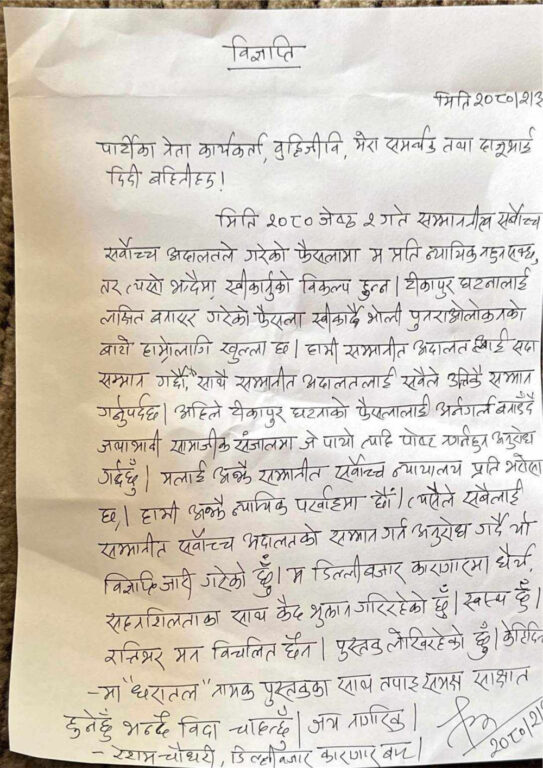 विज्ञप्ति
मिति २०८०।२।३
पार्टीका नेता कार्यकर्ता, वुद्दिजीवि, मेरा समर्थक तथा दाजुभाई
दिदी बहिनीहरु!
मिति २०८० जेष्ठ २ गते सम्माननीय सर्वोच्च
सर्वोच्च अदालतले गरेको फैसलामा म प्रति न्यायिक
तर त्यसो भन्दैमा स्वीकार्नुको विकल्प हुन्न। टीकापुर घटनालाई
लक्षित बनाएर गरेको फैसला स्वीकार्दै भोली पुनराओलोकनको
बाटो हाम्रोलागि खुल्ला छ। हामी सम्मानीत अदालत लाई सदा
सम्मान गर्दछौं, साथै सम्मानीत अदालतलाई सबैले उत्तिकै सम्मान
गर्नुपर्दछ। अहिले टीकापुर घटनाको फैसलालाई अर्नगर्ल बनाउँदै
जथाभावी सामाजीक संजालमा जे पायो त्यहि पोष्ट नगर्नहुन अनुरोध
गर्दछुँ। मलाई अझै सम्मानीत सर्वोच्च न्यायालय प्रति भरोसा
छ,। हामी अझै न्यायिक पर्खाइमा छौं। त्यसैले सबैलाई
सम्मानीत सर्वोच्च अदालतको सम्मान गर्न अनुरोध गर्दै यो
विज्ञप्ति जारी गरेको छुँ। म डिल्लीबजार कारागारमा धैर्य,
सहनशिलताका साथ कैद भुक्तान गरिरहेको छुँ। स्वस्थ छुँ।
रत्तिभर मन विचलित छैन। पुस्तक लेखिरहेको छुँ। केहिदिन
-मा "धरातल" नामक पुस्तकका साथ तपाइ समक्ष साक्षात
हुनेछुँ भन्दै विदा चाहन्छुँ। जय नागरिक।
२०८०।२।
- रेशम चौधरी, डिल्लीबजार कारागार बाट।